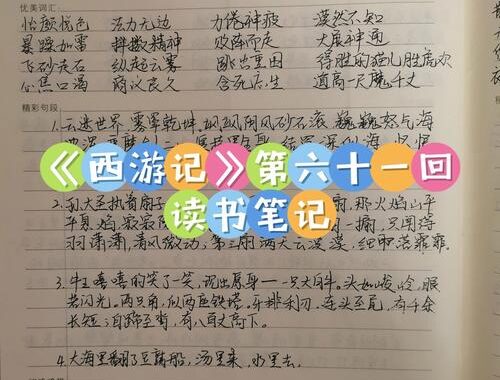 优美词汇:
怡颜悦色 法力无边 力倦神疲 漠然不知
暴躁如雷 抖擞精神 败阵而走 大展神通
飞砂走石 纵起云雾 跳出里围 得胜的猫儿胜虎欢
心焦口渴 商议良久 舍死忘生 道高一尺魔千丈
精彩句段
1.云迷世界,雾罩乾坤,飒飒阴风砂石滚,巍巍怒气海
《西游记》第六十一回
读书笔记
2.孙大圣执着扇子 那火焰山平
平息焰,寂寂 一扇,只闻得
习习潇潇,清风微动;第三扇,满天云漠漠,细雨落霏霏。
3.牛王嘻嘻的笑了一笑,现出原身——一只大白牛。头如峻岭,眼
若闪光。两只角,似两座铁塔。牙排利刃。连头至尾,有千余
长短;自蹄至背,有八百丈高下。
4.大海里翻了豆腐船,汤里来,水里去。